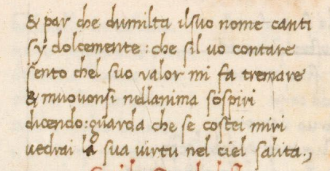 & par che dumilta ilsuo nome canti
sy dolcemente: che sil uo contare
sento chel suo valor mi fa tremare
& muouonsi nellanima sospiri
dicendo: guarda che se costei miri
uedrai la sua uirtu nel ciel salita.,